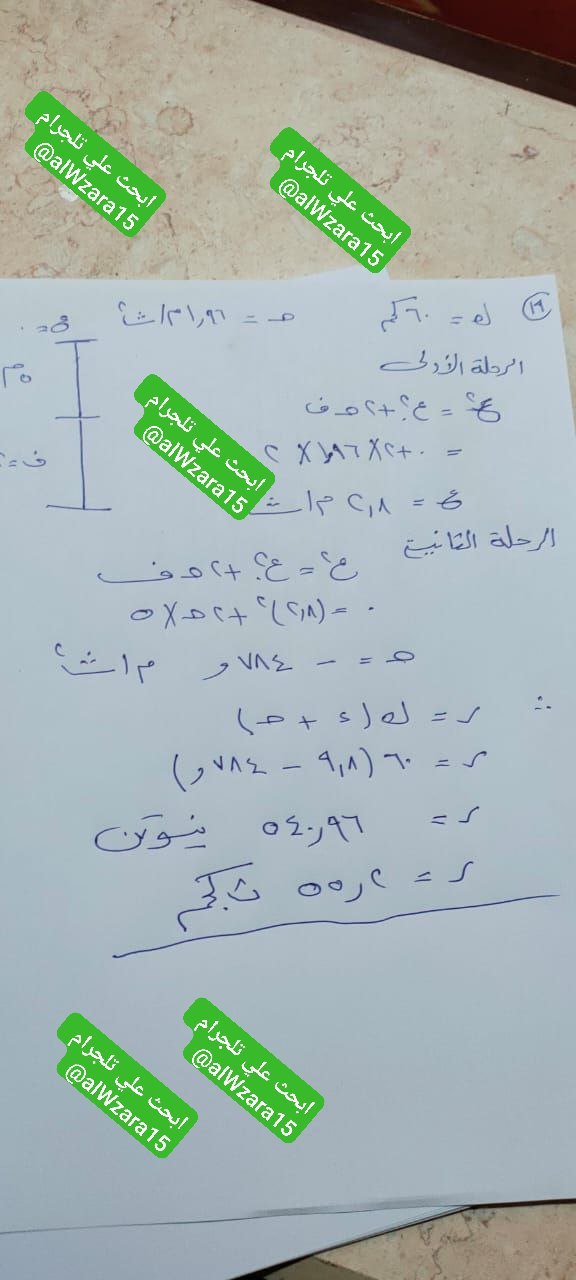 ابحث علي تلجرام
@alWzara15
ابحث علي تلجرام
@alWzara15
١٩
ك = ٦٠ كجم
حـ = ١,٩٦ م/ث٢
ع = ٠
٥م
ف = ٢
الرحلة الأولى
ع٢ = ع.٢ + ٢ حـ ف
= ٠ + ٢ × ١,٩٦ × ٢
ع = ٢,٨ م/ث
ابحث علي تلجرام
@alWzara15
الرحلة الثانية
ع٢ = ع.٢ + ٢ حـ ف
٠ = (٢,٨)٢ + ٢ حـ × ٥
حـ = − ٧٨٤و م/ث٢
∴ ر = ك (ء + حـ)
ر = ٦٠ (٩,٨ − ٧٨٤و)
ر = ٥٤٠,٩٦ نيوتن
ر = ٥٥,٢ ث.كجم
ابحث علي تلجرام
@alWzara15
ابحث علي تلجرام
@alWzara15